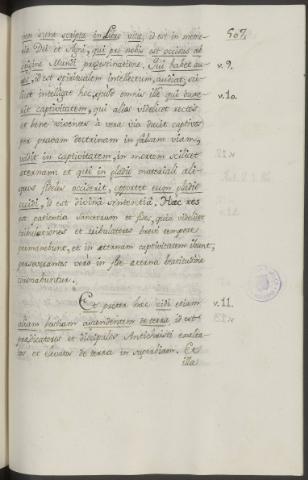 507
non sunt scripta in Libro vitæ, id est in memo-
ria Dei et Agni, qui pro nobis est occisus ab
origine Mundi prædestinatione. Qui habet au-
rem, id est spiritualem intellectum, audiat, sci-
licet intelligat hoc, quod omnis ille qui duxe-
rit captivitatem, qui alios videlicet rectos
et bene viventes à vera via ducit captivos
per pravam doctrinam in falsam viam,
vadit in captivitatem, in mortem scilicet
æternam et qui in gladio materiali ali-
quos fideles occiderit, oportet eum gladio
occidi, id est divina sententia. Hæc res
est patientia Sanctorum et fides, quia videlicet
tribulationes et tribulatores brevi tempore
permanebunt, et in æternam captivitatem ibunt,
perseverantes vero in fide æterna beatitudine
coronabuntur.
Et præter hæc vidi etiam
aliam bestiam ascendentem de terra, id est
prædicatores et discipulos Antichristi exalta-
tos et elevatos de terra in superbiam. Et
illa
v. 9.
v. 10.
v. 11.